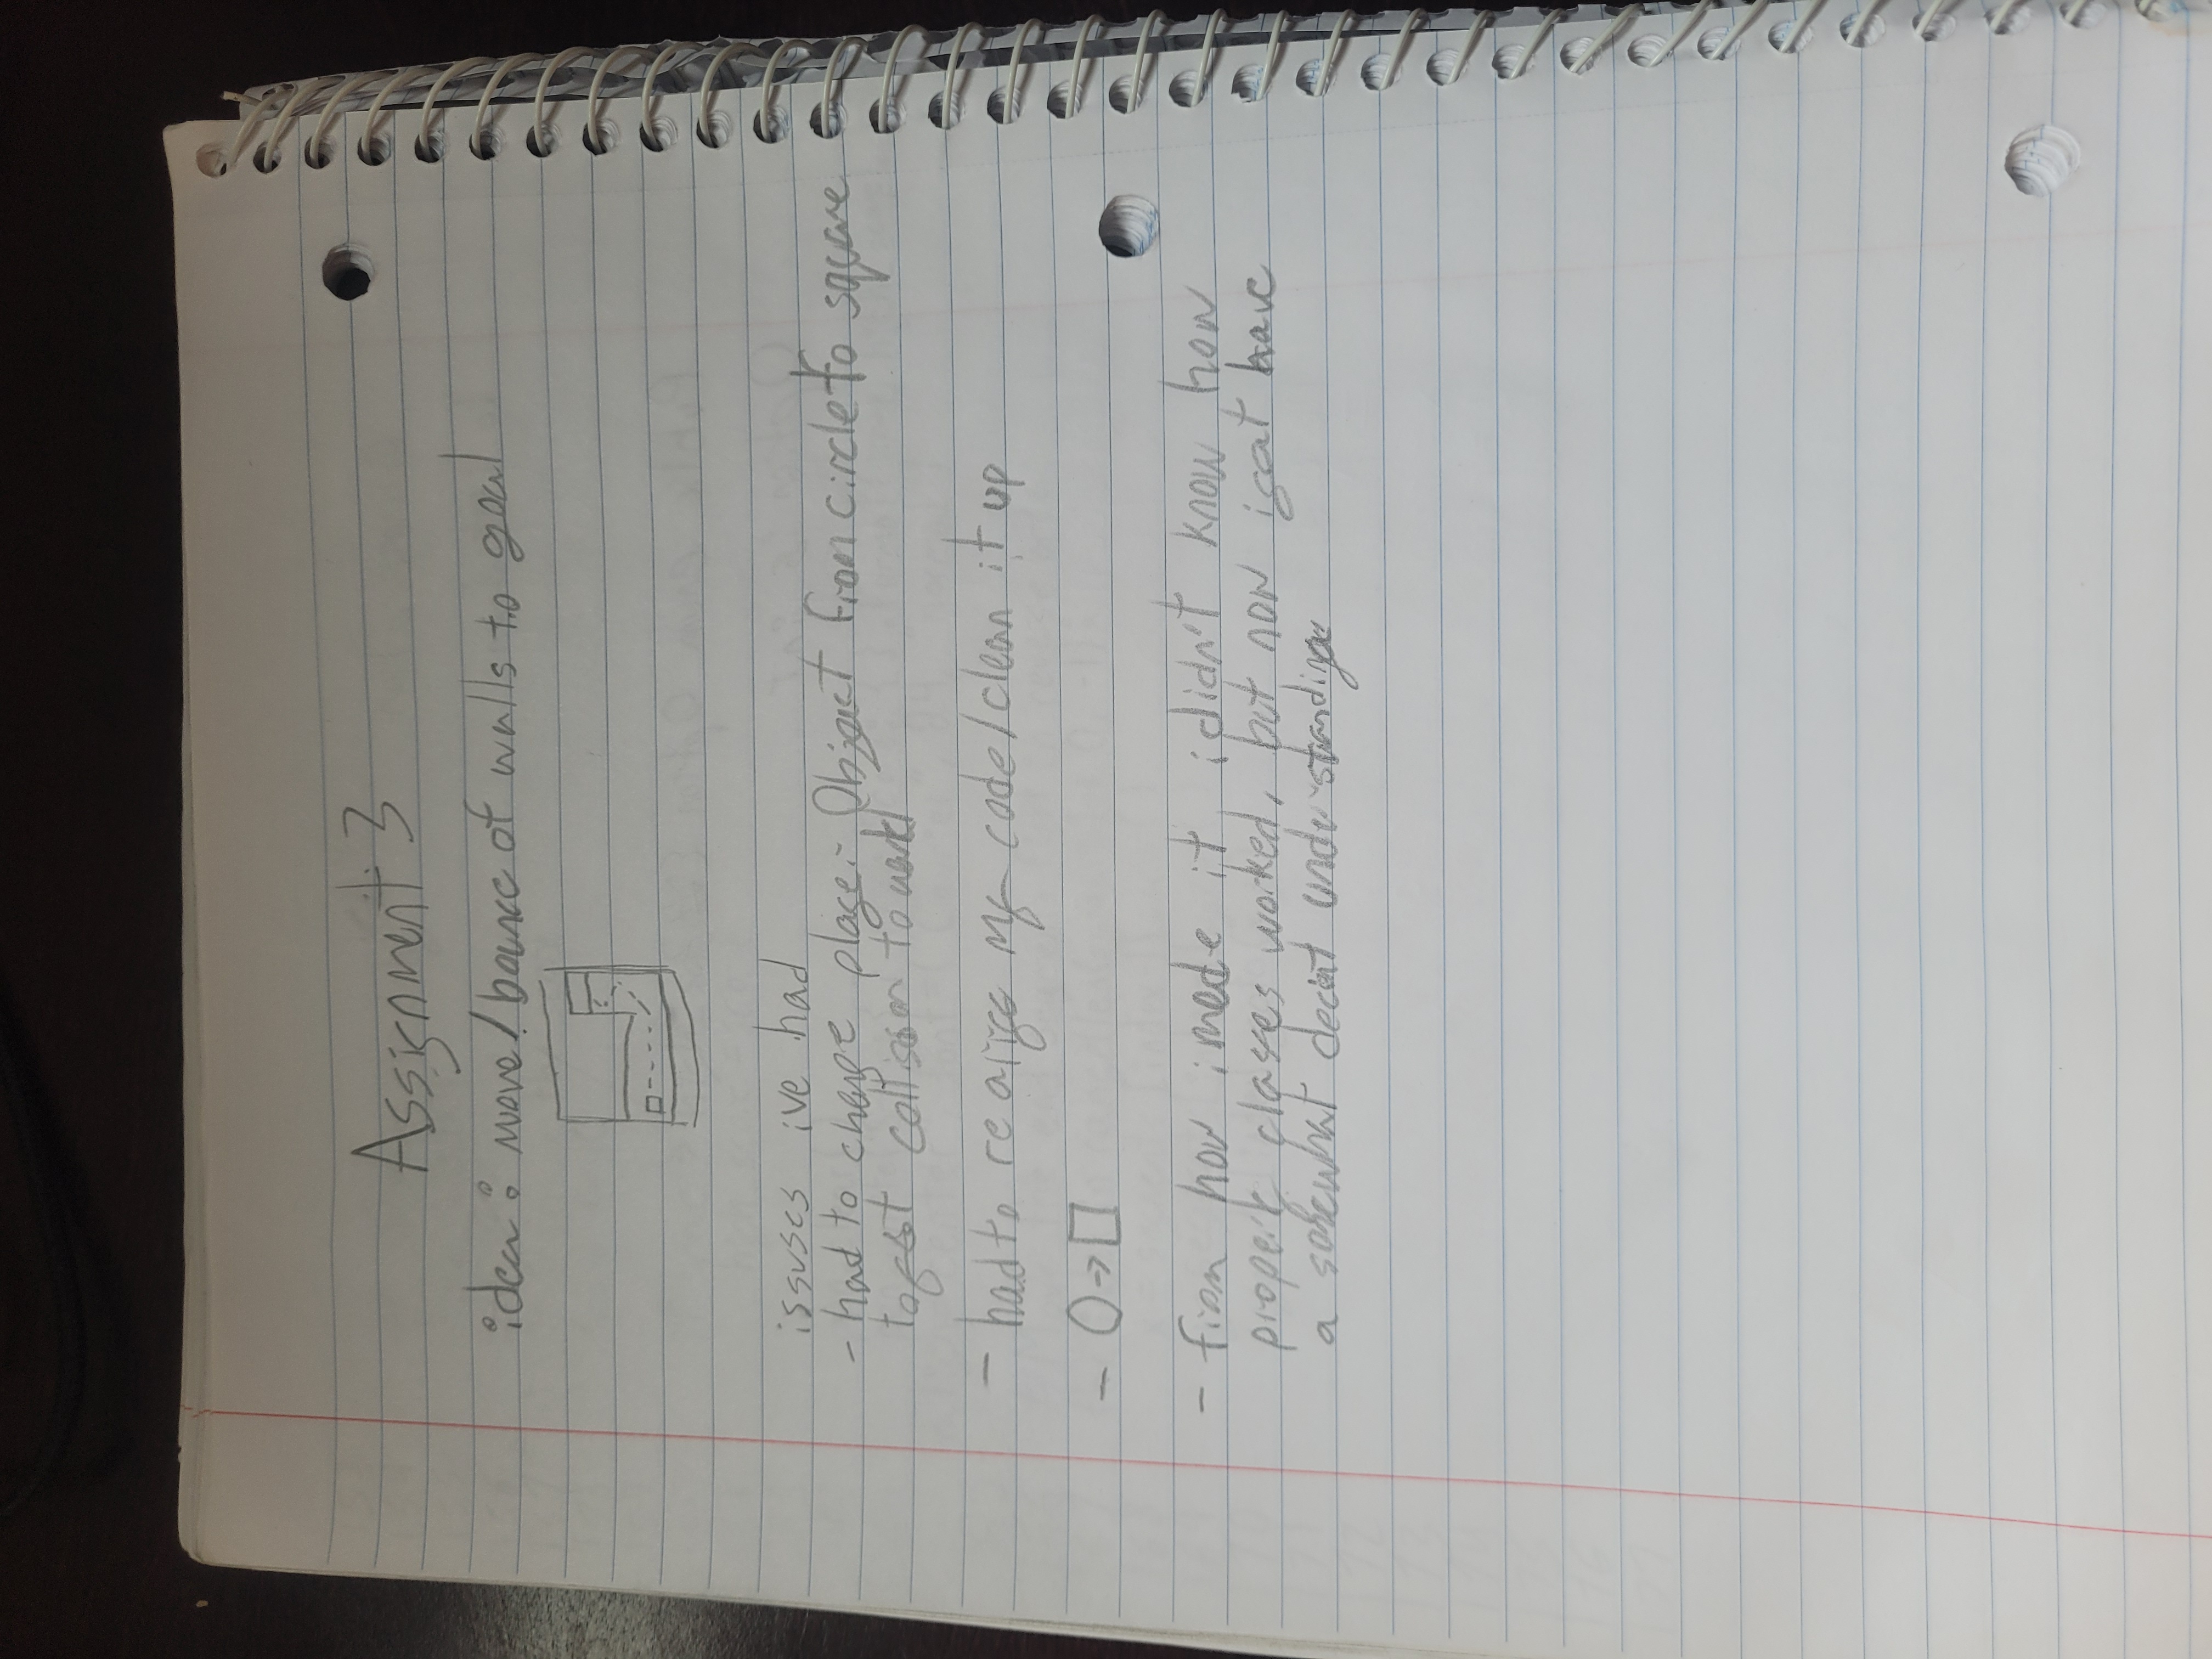 Assignment 3
idea: move/bounce of walls to goal
issuses ive had
- had to change player Object from circle to square
to get collision to work
- had to my code/clean it up
- O → □
- from how i made it, i didn't know how
classes worked, but now i have
a somewhat decent understanding